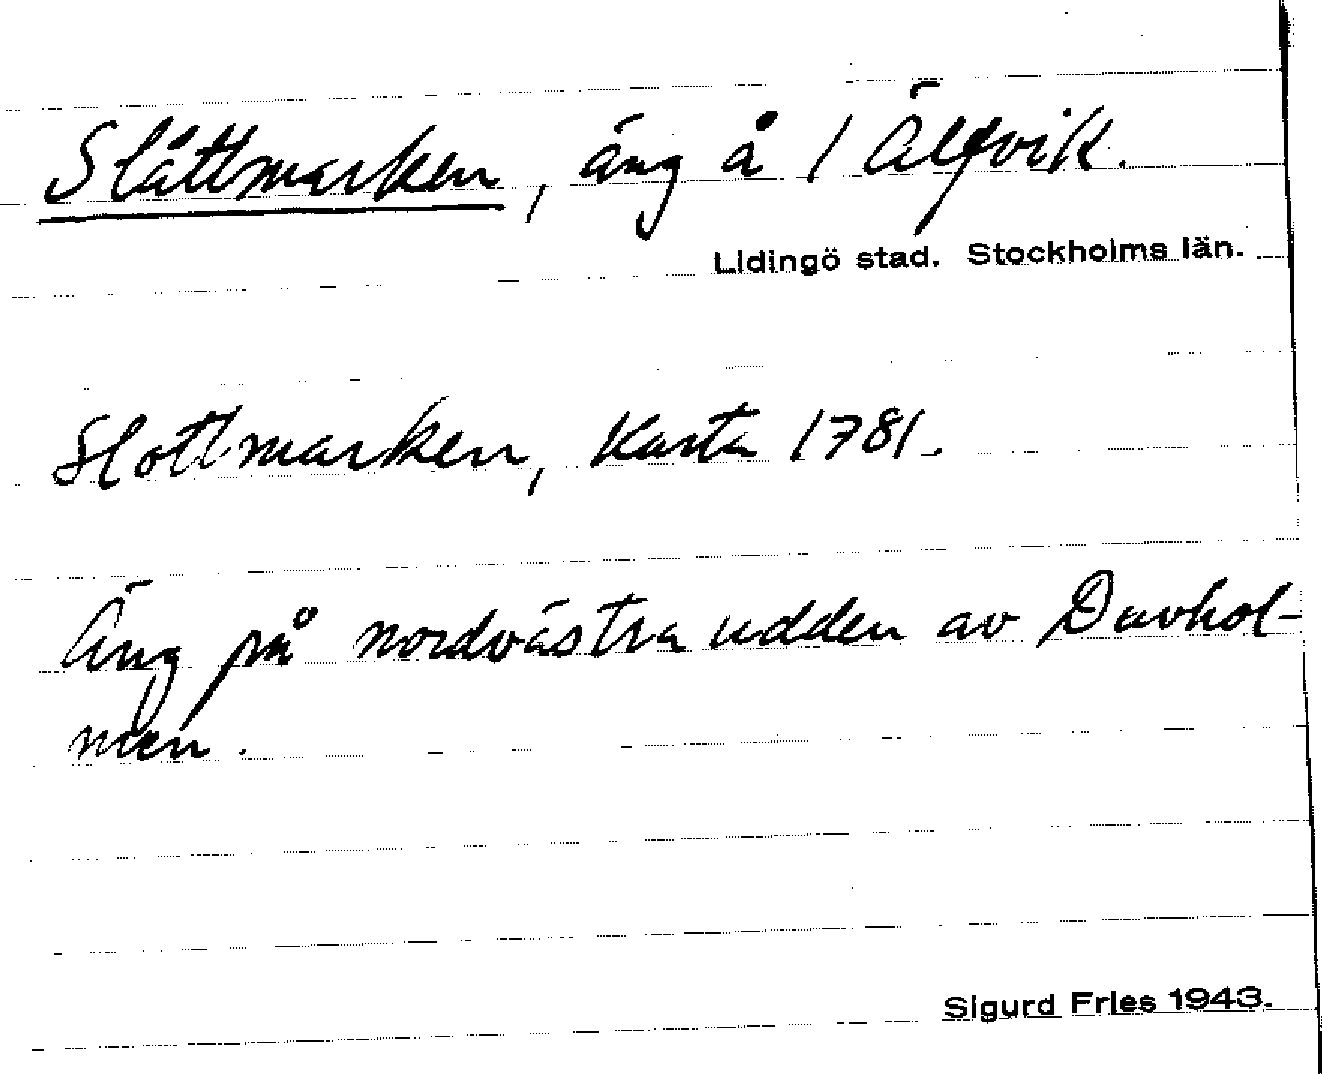 Slåttmarken, äng å 1 Älgvik.
Lidingö stad. Stockholms län.
Slottmarken, Karta 1781.
Äng på nordvästra udden av Duvhol-
men.
Sigurd Fries 1943.